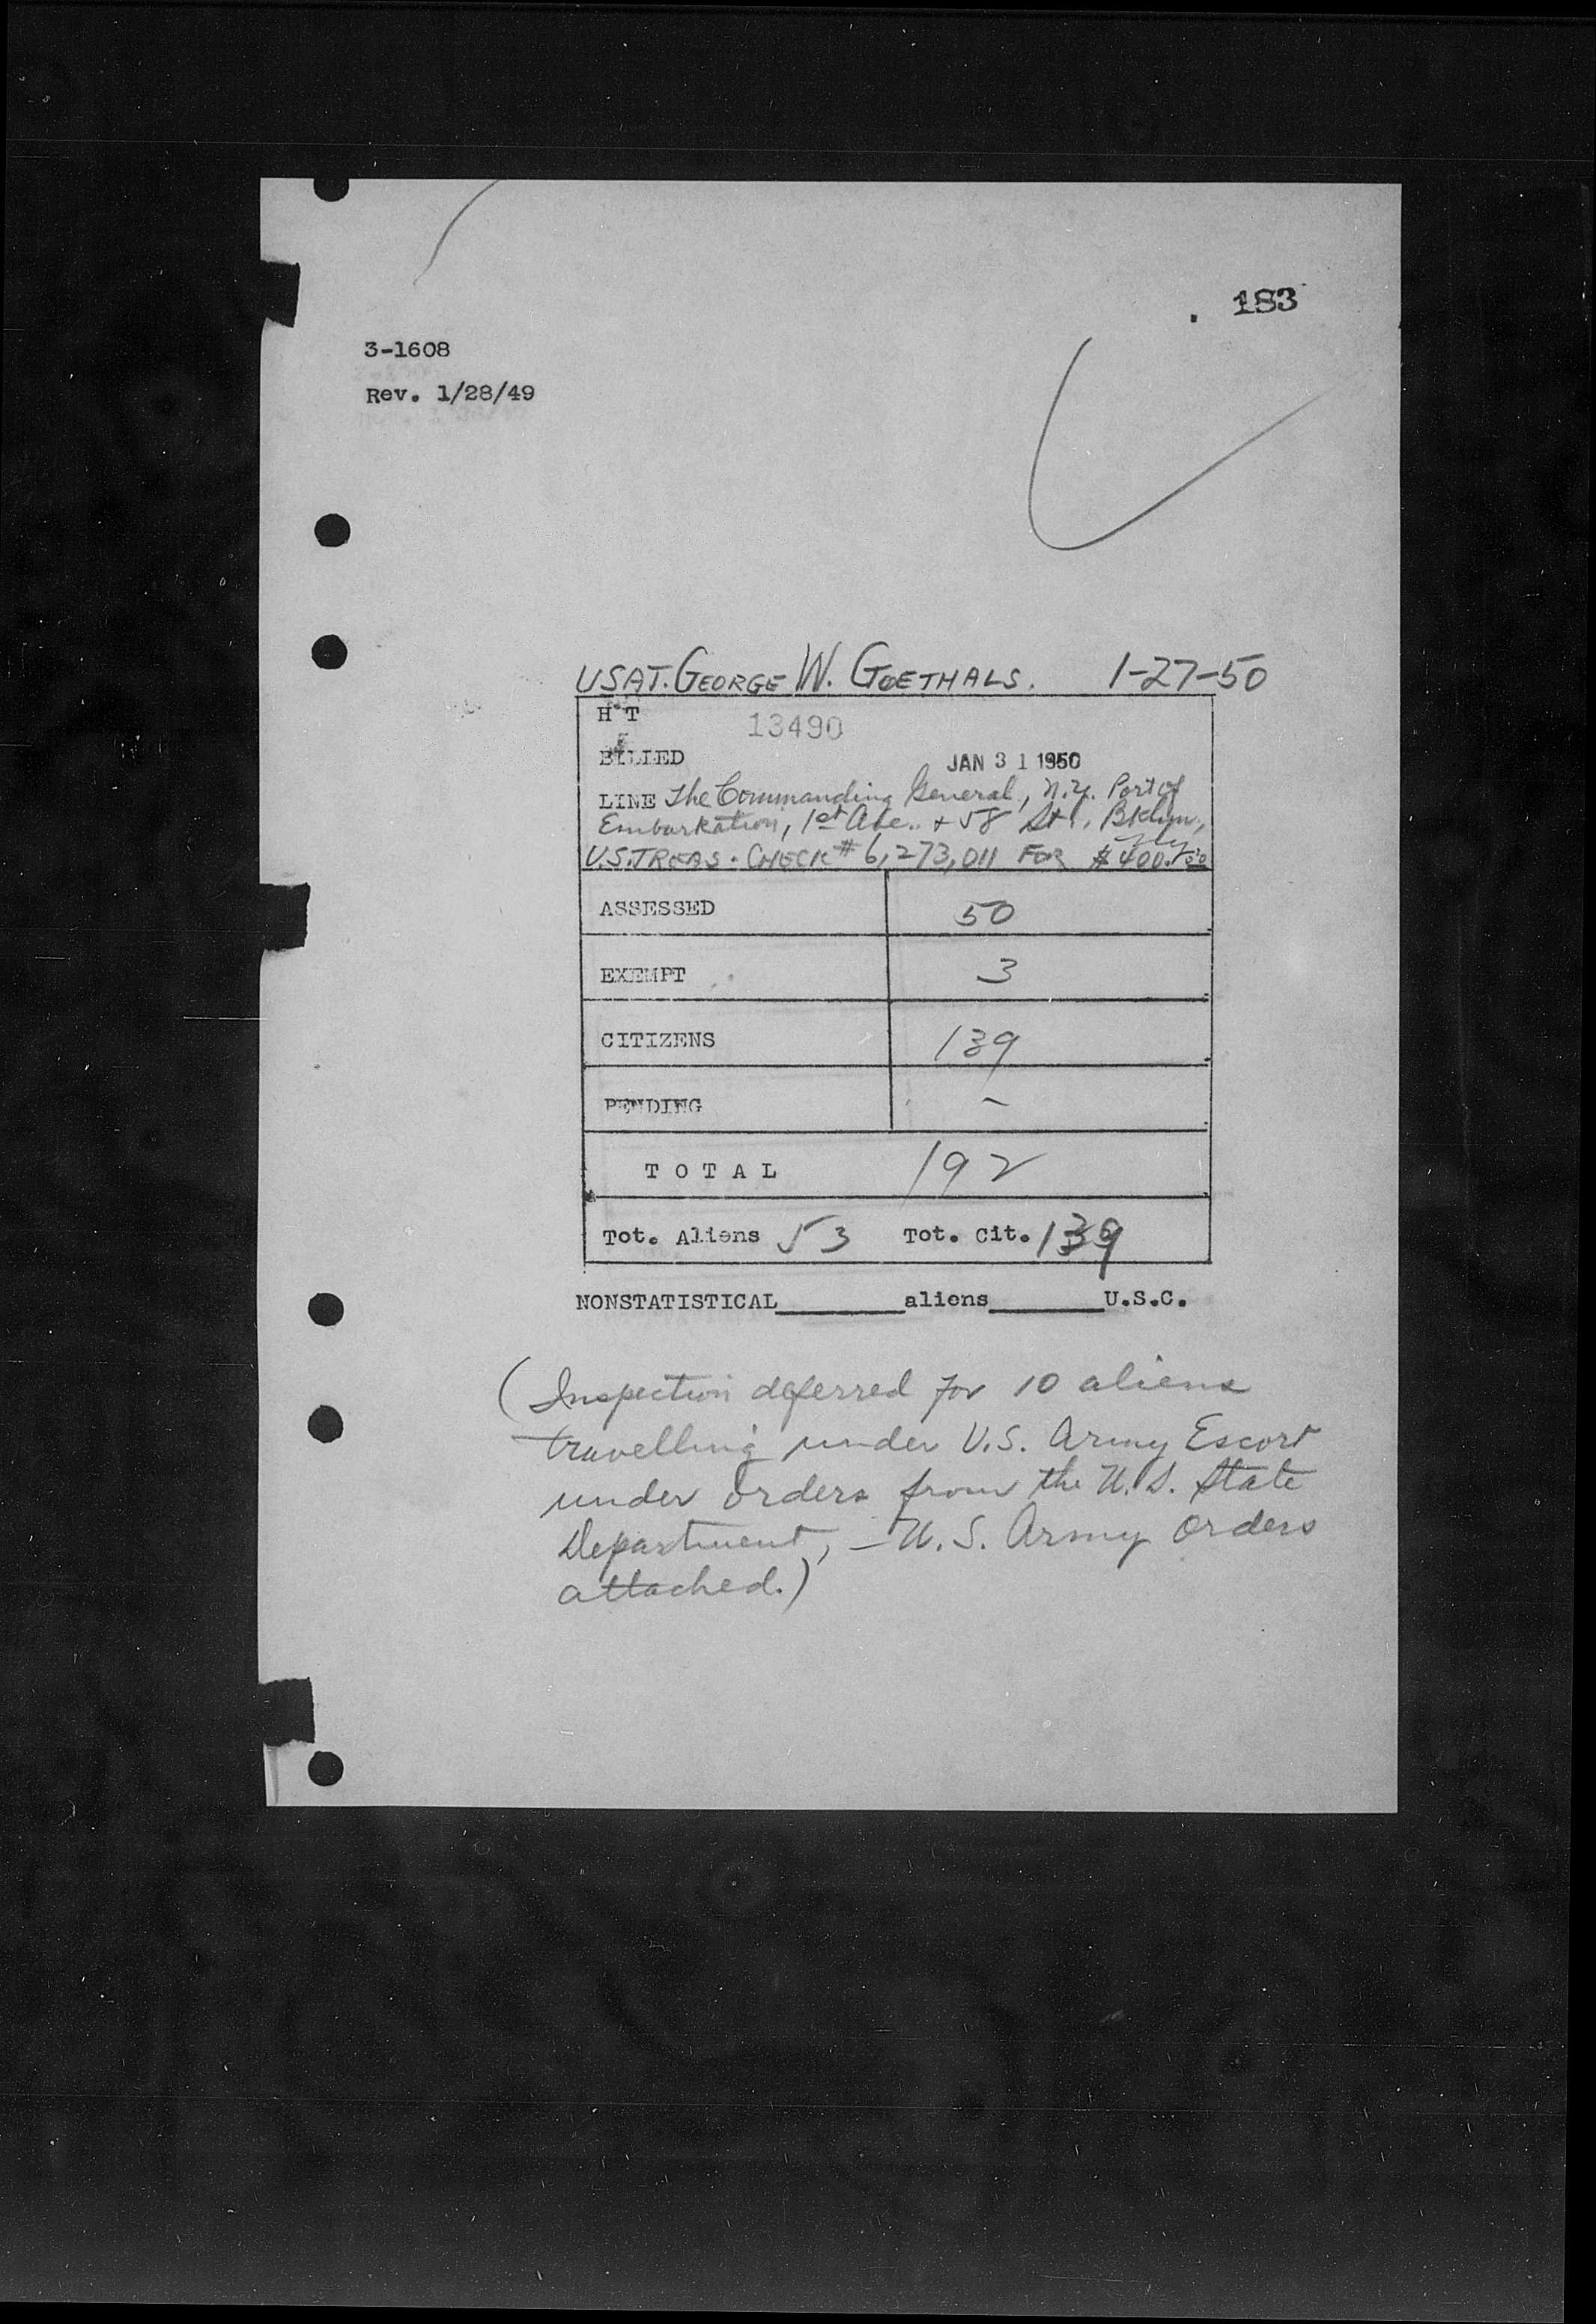 183
3-1608
Rev. 1/28/49
USAT. GEORGE W. GOETHALS. 1-27-50
H T 13490
BILLED JAN 31 1950
LINE The Commanding General, N.Y. Port of
Embarkation, 1st Ave. + 58 St., Bklyn,
N.Y.
U.S. TREAS. CHECK # 6,273,011 FOR $400.00
ASSESSED 50
EXEMPT 3
CITIZENS 139
PENDING -
TOTAL 192
Tot. Aliens 53 Tot. Cit. 139
NONSTATISTICAL aliens U.S.C.
(Inspection deferred for 10 aliens
travelling under U.S. Army Escort
under orders from the U.S. State
Department, - U.S. Army Orders
attached.)